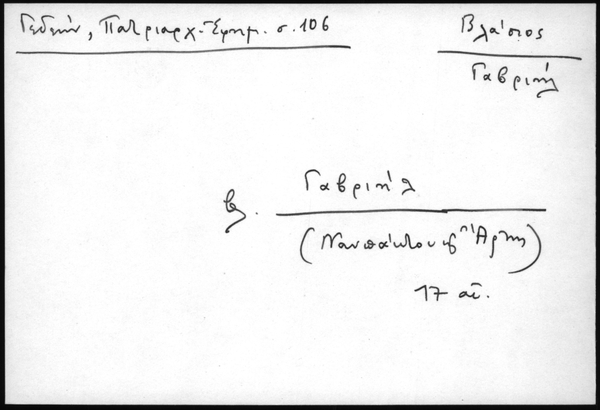 Γεδεών, Πατριαρχ. Ἐφημ. σ. 106
Βλάσιος
Γαβριήλ
βλ. Γαβριήλ
(Ναυπάκτου καὶ Ἄρτης)
17 αἰ.